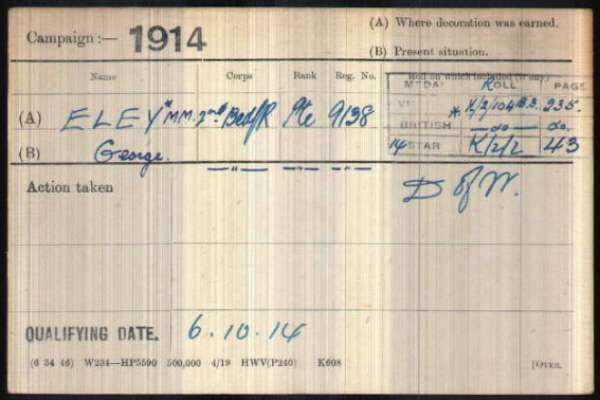 (A) Where decoration was earned.
Campaign :— 1914
(B) Present situation.
Name Corps Rank Reg. No. Roll on which included (if any)
MEDAL ROLL PAGE
(A) ELEY *M.M. 2nd Bedf/R Pte 9138
VI * K/2/104 B.3. 235.
BRITISH —do— do.
(B) George. —"— —"— —"—
14 STAR K/2/2 43
Action taken D of W.
QUALIFYING DATE. 6.10.14
(6 34 46) W234—HP5590 500,000 4/19 HWV(P240) K608 [OVER.